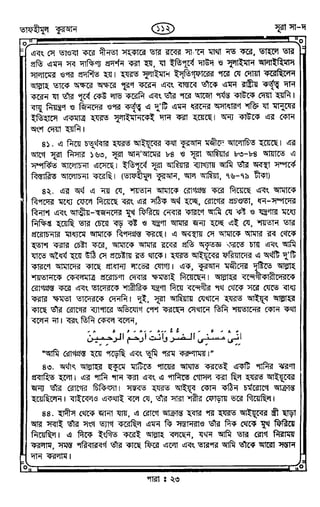 তাফহীমুল কুরআন
১১২
সূরা সা-দ
এবং সে তাওবা করে দীনতা সহকারে তার রবের সামনে মাথা নত করে, তাহলে তার
প্রতি এমন সব দাক্ষিণ্য প্রদর্শন করা হয়, যা ইতিপূর্বে দাউদ ও সুলাইমান আলাইহিমাস
সালামের ওপর প্রদর্শিত হয়। হযরত সুলাইমান ইস্তিগফারের পরে যে দোয়া করেছিলেন
আল্লাহ তাকে অক্ষরে অক্ষরে পূরণ করেন এবং বাস্তবে তাঁকে এমন রাষ্ট্রীয় কর্তৃত্ব দান
করেন যা তাঁর পূর্বে কেউ লাভ করেনি এবং তাঁর পরে আজো পর্যন্ত কাউকে দেয়া হয়নি।
বায়ু নিয়ন্ত্রণ ও জিনদের ওপর কর্তৃত্ব এ দু'টি এমন ধরনের অসাধারণ শক্তি যা মানুষের
ইতিহাসে একমাত্র হযরত সুলাইমানকেই দান করা হয়েছে। অন্য কাউকে এর কোন
অংশ দেয়া হয়নি।
৪১. এ নিয়ে চতুর্থবার হযরত আইয়ুবের কথা কুরআন মজীদে আলোচিত হয়েছে। এর
আগে সূরা নিসার ১৬৩, সূরা আন'আমের ৮৪ ও সূরা আম্বিয়ার ৮৩-৮৪ আয়াতে এ
সম্পর্কিত আলোচনা এসেছে। ইতিপূর্বে সূরা আম্বিয়ার ব্যাখ্যায় আমি তাঁর অবস্থা সম্পর্কে
বিস্তারিত আলোচনা করেছি। (তাফহীমুল কুরআন, আল আম্বিয়া, ৭৬-৭৯ টীকা)
৪২. এর অর্থ এ নয় যে, শয়তান আমাকে রোগগ্রস্ত করে দিয়েছে এবং আমাকে
বিপদের মধ্যে ফেলে দিয়েছে বরং এর সঠিক অর্থ হচ্ছে, রোগের প্রচণ্ডতা, ধন-সম্পদের
বিনাশ এবং আত্মীয়-স্বজনদের মুখ ফিরিয়ে নেবার কারণে আমি যে কষ্ট ও যন্ত্রণার মধ্যে
নিক্ষিপ্ত হয়েছি তার চেয়ে বড় কষ্ট ও যন্ত্রণা আমার জন্য হচ্ছে এই যে, শয়তান তার
প্ররোচনার মাধ্যমে আমাকে বিপদগ্রস্ত করছে। এ অবস্থায় সে আমাকে আমার রব থেকে
হতাশ করার চেষ্টা করে, আমাকে আমার রবের প্রতি অকৃতজ্ঞ করতে চায় এবং আমি
যাতে অধৈর্য হয়ে উঠি সে প্রচেষ্টায় রত থাকে। হযরত আইয়ুবের ফরিয়াদের এ অর্থটি দু'টি
কারণে আমাদের কাছে প্রাধান্য লাভের যোগ্য। এক, কুরআন মজীদের দৃষ্টিতে আল্লাহ
শয়তানকে কেবলমাত্র প্ররোচণা দেবার ক্ষমতাই দিয়েছেন। আল্লাহর বন্দেগীকারীদেরকে
রোগগ্রস্ত করে এবং তাদেরকে শারীরিক যন্ত্রণা দিয়ে বন্দেগীর পথ থেকে সরে যেতে বাধ্য
করার ক্ষমতা তাদেরকে দেননি। দুই, সূরা আম্বিয়ায় যেখানে হযরত আইয়ুব আল্লাহর
কাছে তাঁর রোগের ব্যাপারে অভিযোগ পেশ করছেন সেখানে তিনি শয়তানের কোন কথা
বলেন না। বরং তিনি কেবল বলেন,
اَنِّیْ مَسَّنِیَ الضُّرُّ وَاَنْتَ اَرْحَمُ الرّٰحِمِیْنَ
"আমি রোগগ্রস্ত হয়ে পড়েছি এবং তুমি পরম করুণাময়।"
৪৩. অর্থাৎ আল্লাহর হুকুমে মাটিতে পায়ের আঘাত করতেই একটি পানির ঝরণা
প্রবাহিত হলো। এর পানি পান করা এবং এ পানিতে গোসল করা ছিল হযরত আইয়ুবের
জন্য তাঁর রোগের চিকিৎসা। সম্ভবত হযরত আইয়ুব কোন কঠিন চর্মরোগে আক্রান্ত
হয়েছিলেন। বাইবেলও একথাই বলে যে, তাঁর সারা শরীর ফোড়ায় ভরে গিয়েছিল।
৪৪. হাদীস থেকে জানা যায়, এ রোগে আক্রান্ত হবার পর হযরত আইয়ুবের স্ত্রী ছাড়া
আর সবাই তাঁর সংগ ত্যাগ করেছিল এমন কি সন্তানরাও তাঁর দিক থেকে মুখ ফিরিয়ে
নিয়েছিল। এ দিকে ইংগিত করেই আল্লাহ বলছেন, যখন আমি তার রোগ নিরাময়
করলাম, সমস্ত পরিবারবর্গ তার কাছে ফিরে এলো এবং তারপর আমি তাঁকে আরো সন্তান
দান করলাম।
পারা : ২৩